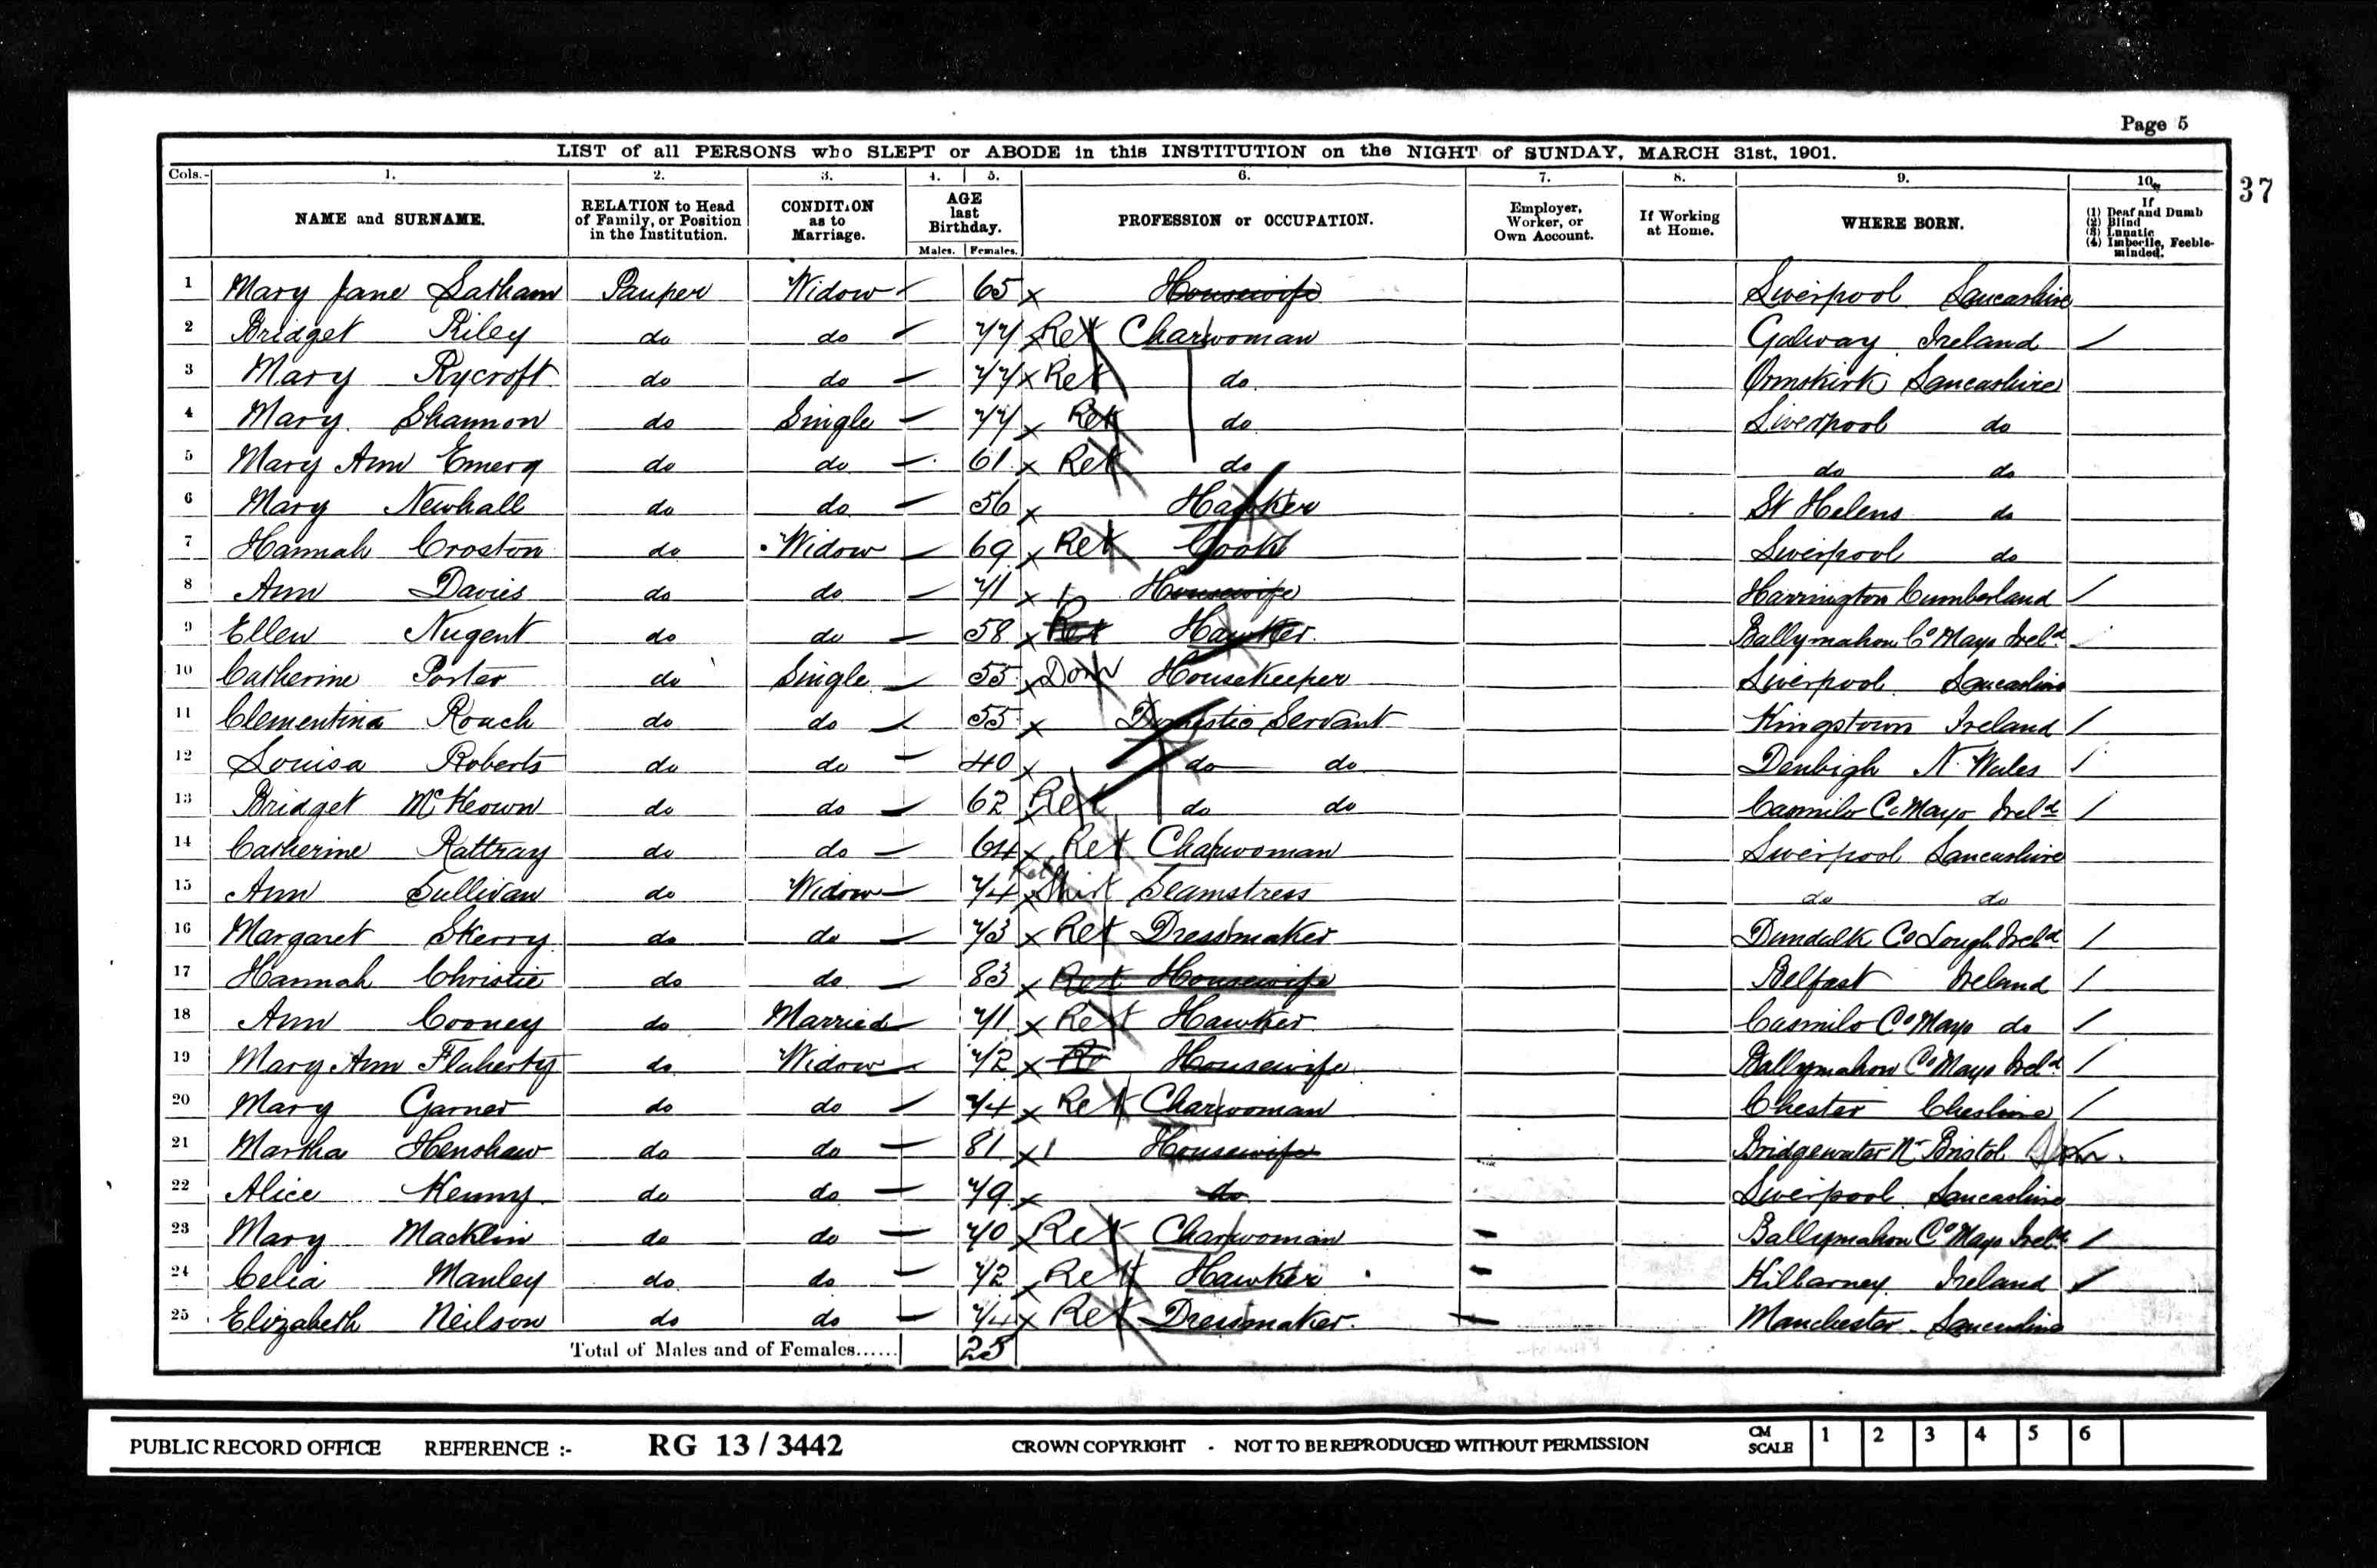 Page 5
LIST of all PERSONS who SLEPT or ABODE in this INSTITUTION on the NIGHT of SUNDAY, MARCH 31st, 1901.
37
Cols.- 1. 2. 3. 4. 5. 6. 7. 8. 9. 10.
NAME and SURNAME. RELATION to Head of Family, or Position in the Institution. CONDITION as to Marriage. AGE last Birthday. Males. Females. PROFESSION or OCCUPATION. Employer, Worker, or Own Account. If Working at Home. WHERE BORN. If (1) Deaf and Dumb (2) Blind (3) Lunatic (4) Imbecile, Feeble-minded.
1 Mary Jane Latham Pauper Widow 65 x Housewife Liverpool Lancashire
2 Bridget Riley do do 77 x Ret Charwoman Galway Ireland
3 Mary Rycroft do do 77 x Ret do Ormskirk Lancashire
4 Mary Shannon do Single 77 x Ret do Liverpool do
5 Mary Ann Emery do do 61 x Ret do do do
6 Mary Newhall do do 56 x Hawker St Helens do
7 Hannah Croston do Widow 69 x Ret Cook Liverpool do
8 Ann Davies do do 71 x Housewife Harrington Cumberland
9 Ellen Nugent do do 58 x Ret Hawker Ballymahon Co Mayo Ireld
10 Catherine Porter do Single 55 x Dom Housekeeper Liverpool Lancashire
11 Clementina Roach do do 55 x Domestic Servant Kingstown Ireland
12 Louisa Roberts do do 40 x do do Denbigh N. Wales
13 Bridget McKeown do do 62 x Ret do do Casmilo Co Mayo Ireld
14 Catherine Rattray do do 64 x Ret Charwoman Liverpool Lancashire
15 Ann Sullivan do Widow 74 x Ret Shirt Seamstress do do
16 Margaret Skerry do do 73 x Ret Dressmaker Dundalk Co Lough Ireld
17 Hannah Christie do do 83 x Ret Housewife Belfast Ireland
18 Ann Cooney do Married 71 x Ret Hawker Casmilo Co Mayo do
19 Mary Ann Flaherty do Widow 72 x Housewife Ballymahon Co Mayo Ireld
20 Mary Garner do do 74 x Ret Charwoman Chester Cheshire
21 Martha Henshaw do do 81 x Housewife Bridgewater Nr Bristol
22 Alice Kenny do do 79 x do Liverpool Lancashire
23 Mary Macklin do do 70 x Ret Charwoman Ballymahon Co Mayo Ireld
24 Celia Manley do do 72 x Ret Hawker Killarney Ireland
25 Elizabeth Neilson do do 74 x Ret Dressmaker Manchester Lancashire
Total of Males and of Females...... 25
PUBLIC RECORD OFFICE REFERENCE :- RG 13 / 3442 CROWN COPYRIGHT - NOT TO BE REPRODUCED WITHOUT PERMISSION CM SCALE 1 2 3 4 5 6